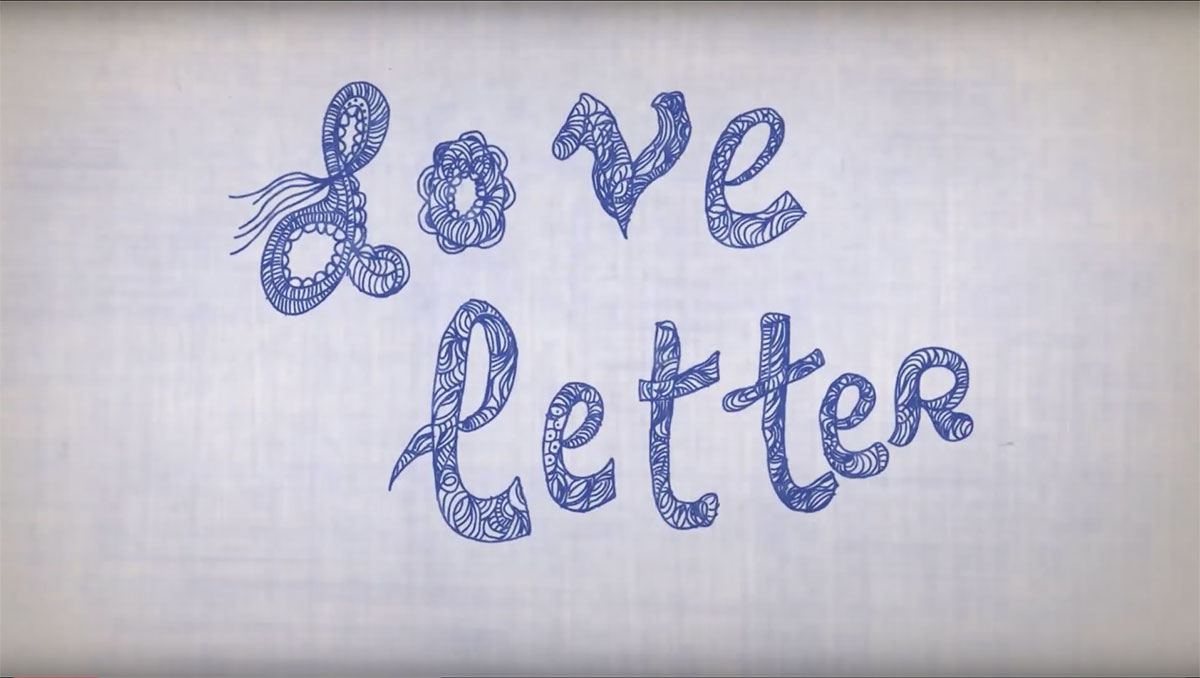 Love
letter